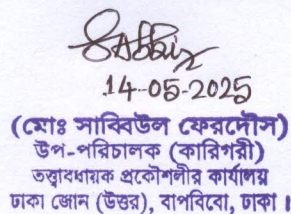 Sabbir
14-05-2025
(মোঃ সাব্বিউল ফেরদৌস)
উপ-পরিচালক (কারিগরী)
তত্ত্বাবধায়ক প্রকৌশলীর কার্যালয়
ঢাকা জোন (উত্তর), বাপবিবো, ঢাকা।